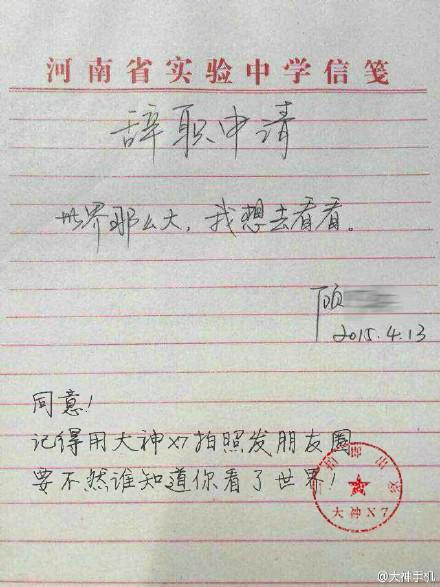 河南省实验中学信笺
辞职申请
世界那么大，我想去看看。
顾
2015.4.13
同意！
记得用大神X7拍照发朋友圈
要不然谁知道你看了世界！
拍即出发
大神X7
@大神手机